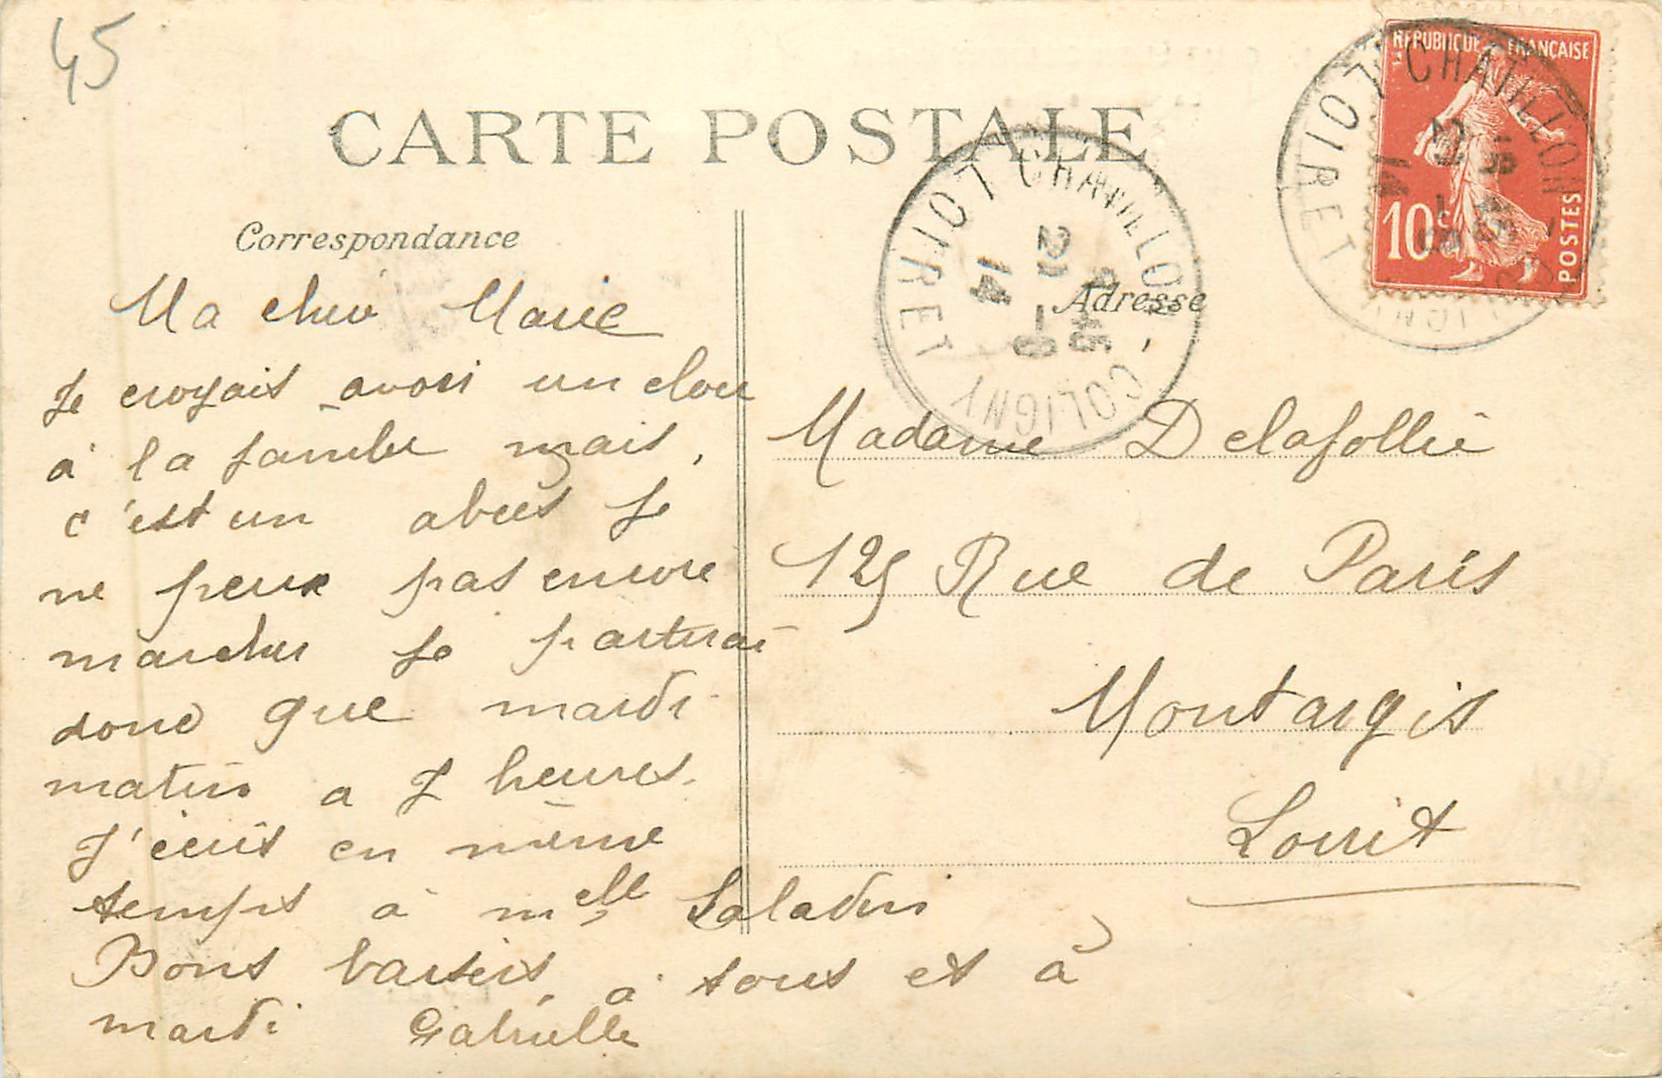 45
CARTE POSTALE
Correspondance
Ma cheré Marie
Je croyais avoir un clou
à la jambe mais,
c'est un abces Je
ne peux pas encore
marcher je partirai
donc que mardi
matin a 7 heures.
J'écris en même
temps à Melle Saladin
Bons baisers, à tous et à
mardi Gabrielle
Adresse
Madame Delafollie
125 Rue de Paris
Montargis
Loiret
CHATILLON-COLIGNY
LOIRET
15
21 -8
14
RÉPUBLIQUE FRANÇAISE
10c
POSTES
CHATILLON-COLIGNY
LOIRET
14